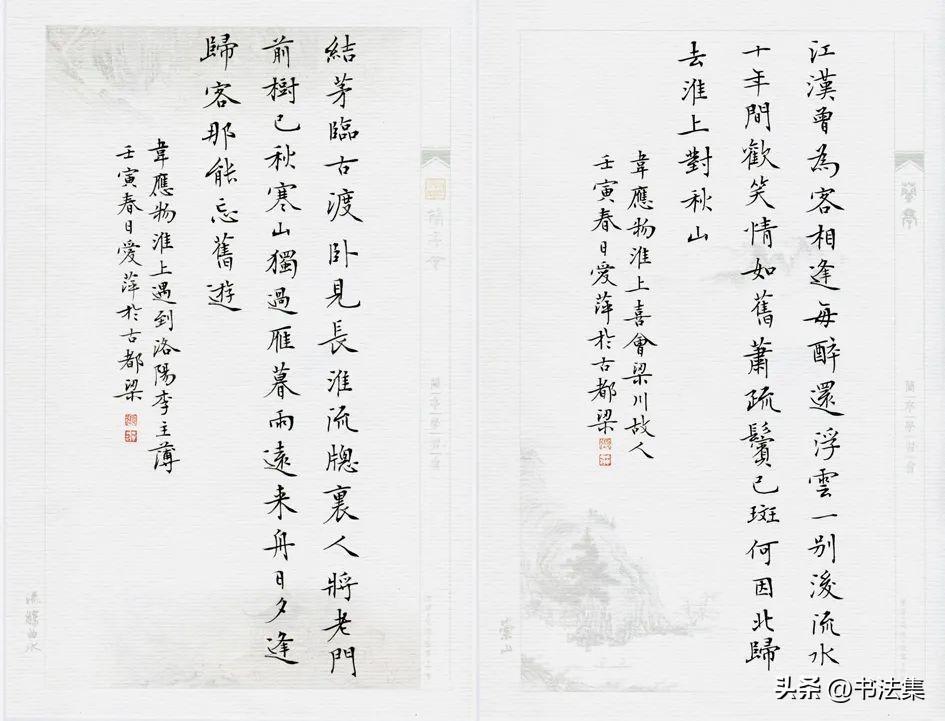 江漢曾為客相逢每醉還浮雲一别後流水
十年間歡笑情如舊蕭疏鬢已斑何因北歸
去淮上對秋山
韋應物淮上喜會梁川故人
壬寅春日愛萍於古都梁
蘭亭
崇山
結茅臨古渡卧見長淮流牕裏人將老門
前樹已秋寒山獨過雁暮雨遠来舟日夕逢
歸客那能忘舊遊
韋應物淮上遇到洛陽李主薄
壬寅春日愛萍於古都梁
流觴曲水
头条 @书法集